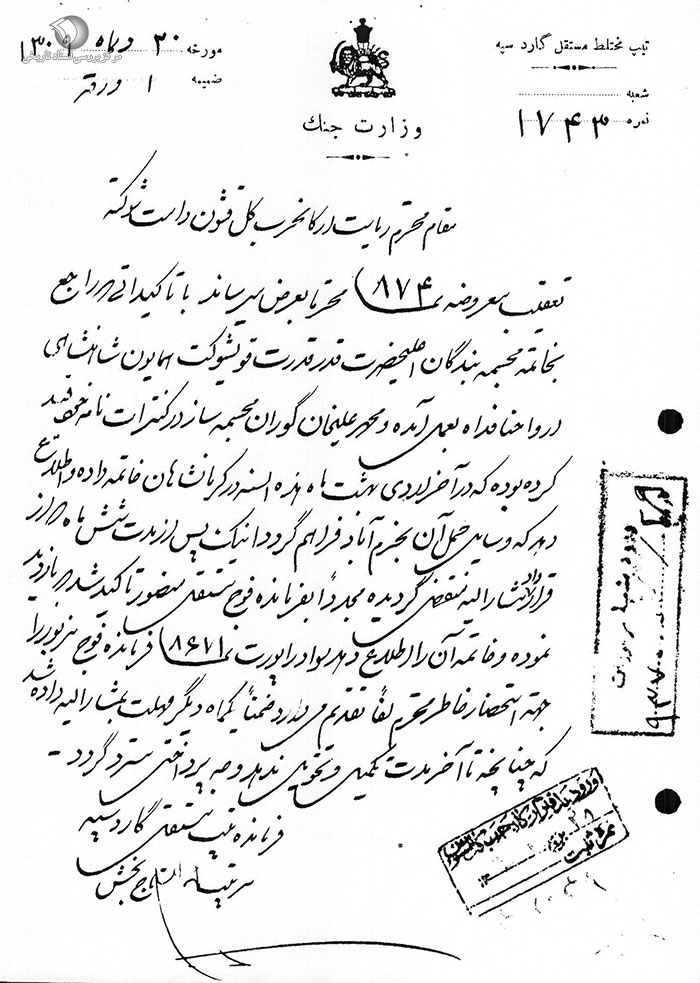 تیپ مختلط مستقل گارد سپه
شعبه
نمره ۱۷۴۳
وزارت جنگ
مورخه ۳۰ دیماه ۱۳۰۹
ضمیمه ۱ ورقه
مرکز بررسی اسناد تاریخی
مقام محترم ریاست ارکانحرب کل قشون دامت شوکته
تعقیب معروضه نمره ۸۷۴ محترما بعرض میرساند با تاکیداتی که راجع
بخاتمه مجسمه بندگان اعلیحضرت قدر قدرت قویشوکت همایون شاهنشاهی
ارواحنا فداه بعمل آمده و مجسمه ساز در کنترات نامه خود قید
کرده بوده که در آخر اردی بهشت ماه هذه السنه در کرمانشاهان خاتمه داده و اطلاع
دهد که وسایل حمل آن بخرم آباد فراهم گردد اینک پس از مدت شش ماه که از
قرارداد مشارالیه منقضی گردیده مجددا بفرمانده فوج مستقل منصور تاکید شد که بازدید
نموده و خاتمه آن را اطلاع دهد سواد راپورت نمره ۸۶۷۱ فرمانده فوج مزبور را
جهة استحضار خاطر محترم لفاً تقدیم میدارد ضمناً یکماه دیگر مهلت بمشارالیه داده شد
که چنانچه تا آخر مدت تکمیل و تحویل ندهد وجه پرداختی مسترد گردد -
فرمانده تیپ مستقل گارد سپه
سرتیپ تاج بخش
ورود
نمره ثبت